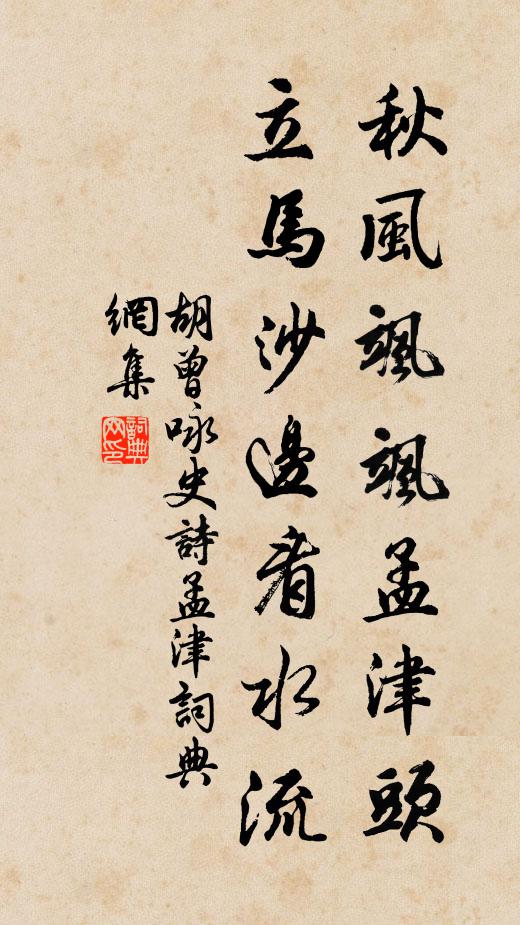 秋風颯颯孟津頭
立馬沙邊看水流
胡曾咏史詩孟津詞典
網集
詞典
网印